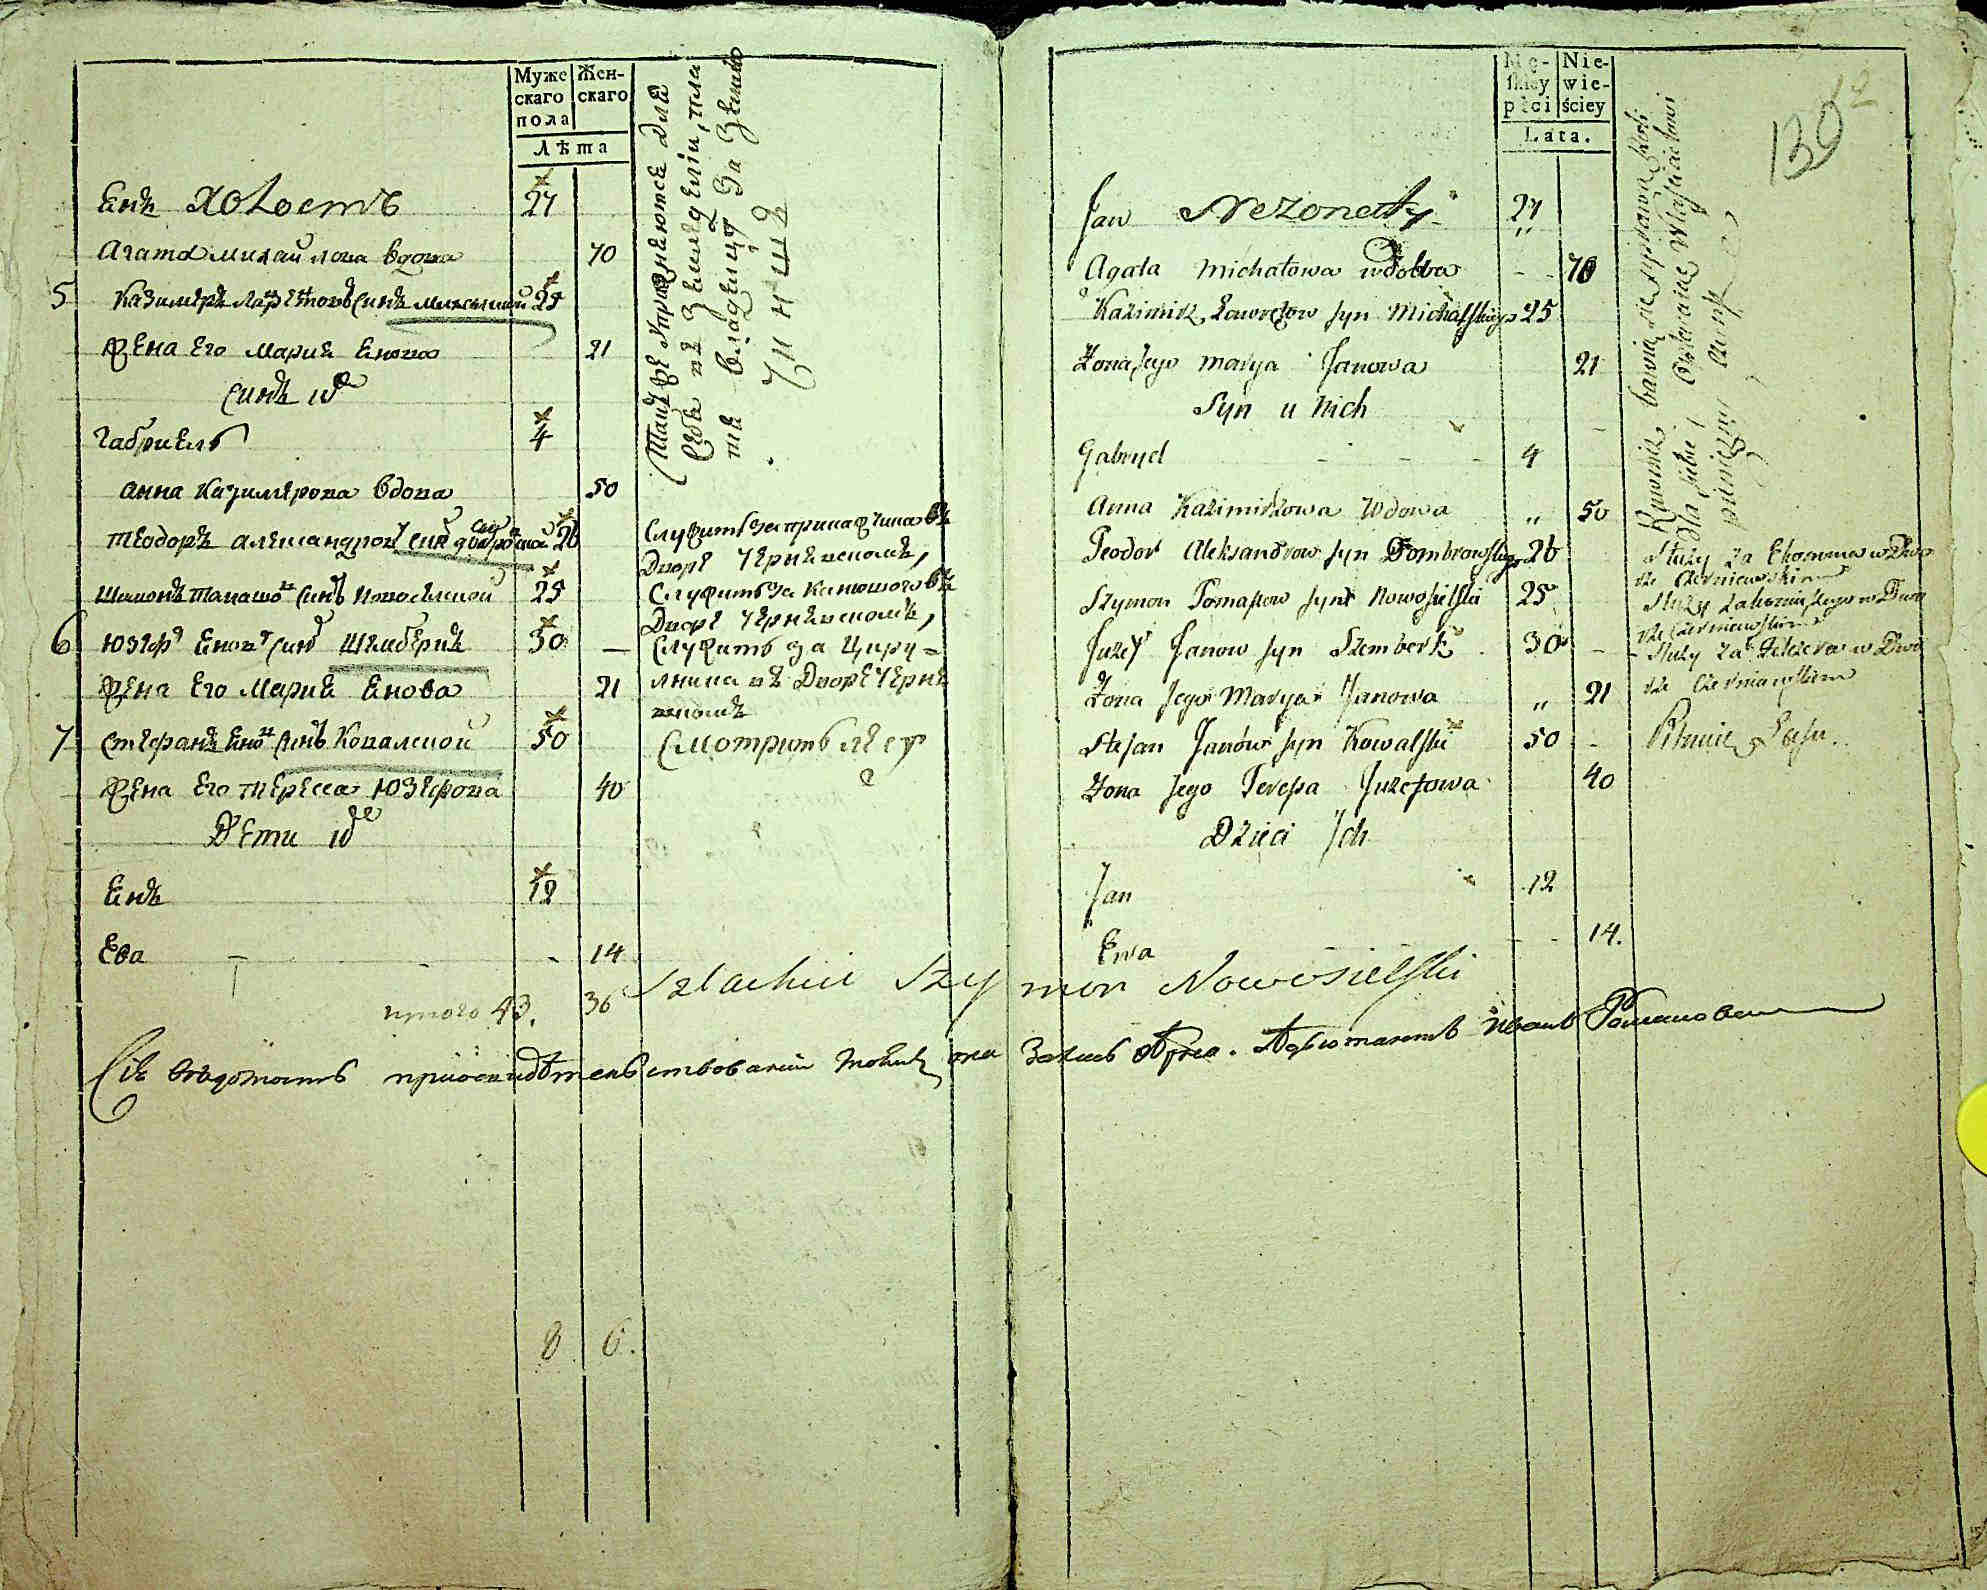 Муже
скаго
пола
Жен-
скаго
Лѣта
Янъ Холостъ 27
Агата Михайлова вдова 70
5 Казимѣръ Лаврѣновъ Синъ 25
Жена Его Мария Янова 21
Синъ их
Габриель 4
Анна Казимерова Вдова 50
Теодоръ Александровъ Син 26
Шимонъ Тамашов Синъ Новоселской 25
6 Юзеф Янов Син Шемберкъ 30
Жена Его Мария Янова 21
7 Стефанъ Янов Синъ Ковалской 50
Жена Его Тересса Юзефова 40
Дети их
Янъ 12
Ева 14
итого 43. 36
8 6.
упражняются для
себя въ земледелии, пла
тя владелцу за землю
Чиншъ
Служитъ за въ
Дворе Черневскомъ,
Служитъ за въ
Дворе Черневскомъ,
Служитъ за Циру=
лика въ Дворе Черне
вскомъ
Смотритъ лесу
Mę-
skiey
płci
Nie-
wie-
ściey
Lata.
139
Jan Nezonaty 27
Agata Michałowa wdowa 70
Kazimirz Ławrezow syn Michalskiego 25
Żona Jego Marya Janowa 21
Syn u Nich
Gabryel 4
Anna Kazimirzowa Wdowa 50
Teodor Aleksandrow syn Dombrowskiego 26
Szymon Tomaszow syn Nowosielski 25
Juzef Janow syn Szemberk 30
Żona Jego Marya Janowa 21
Stefan Janów syn Kowalski 50
Żona Jego Teressa Juzefowa 40
Dzieci Ich
Jan 12
Ewa 14.
Rownie bawią się
dla siebie
Służy za Ekonoma w Dwo
rze Czerniewskim
Służy za w Dwo
rze Czerniewskim
Służy za w Dwo
rze Czerniewskim
Pilnuie Lasu.
Szlachcic Szymon Nowosielski
Сiя ведомость Адъютантъ Иванъ Романовъ